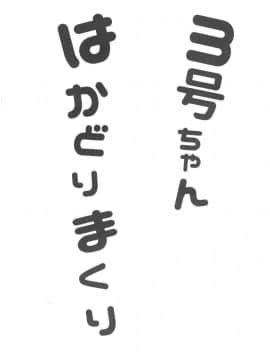 3号ちゃん
はかどりまくり